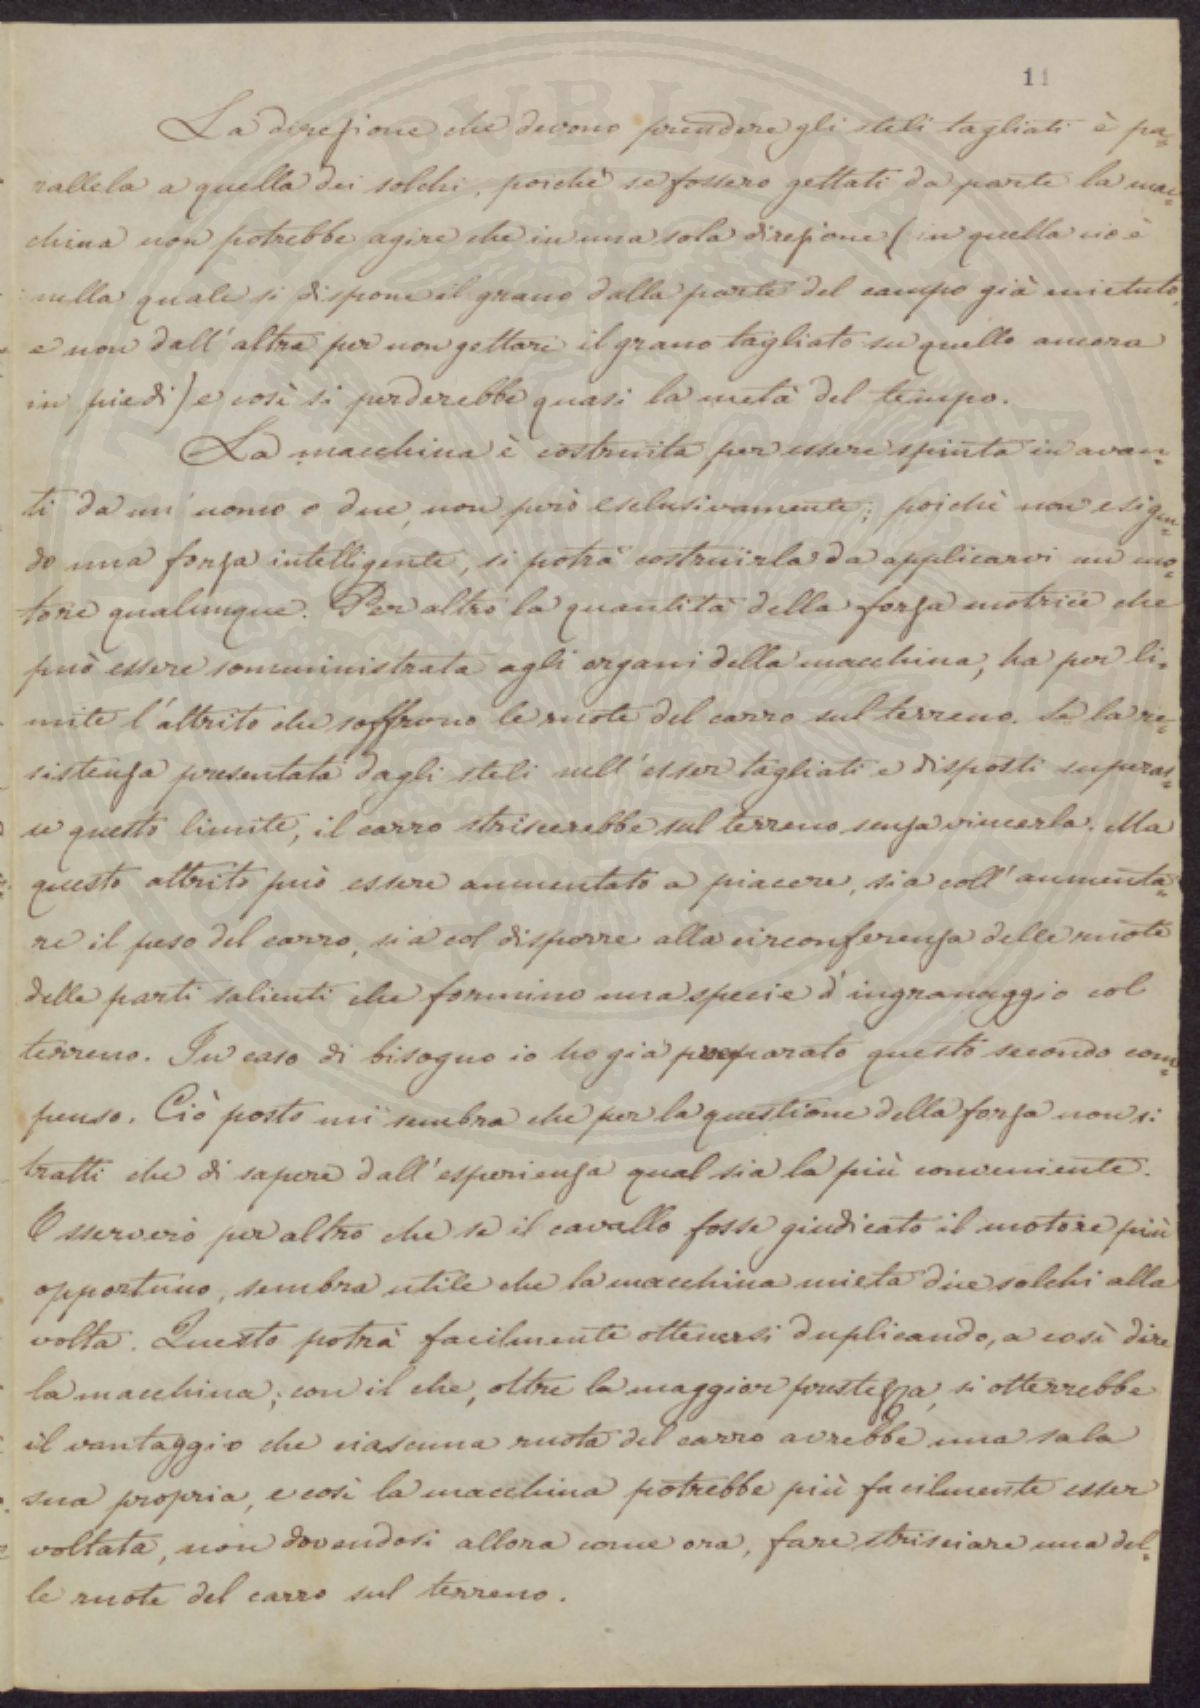 11
La direzione che devono prendere gli steli tagliati è pa=
rallela a quella dei solchi, poichè se fossero gettati da parte la mac=
china non potrebbe agire che in una sola direzione (in quella cioè
nella quale si dispone il grano dalla parte del campo già mietuto,
e non dall'altra per non gettare il grano tagliato su quello ancora
in piedi) e così si perderebbe quasi la metà del tempo.
La macchina è costruita per essere spinta in avan=
ti da un'uomo o due, non però esclusivamente; poichè non esigen=
do una forza intelligente, si potrà costruirla da applicarvi un mo=
tore qualunque. Per altro la quantità della forza motrice che
può essere somministrata agli organi della macchina, ha per li=
mite l'attrito che soffrono le ruote del carro sul terreno. Se la re=
sistenza presentata dagli steli nell'esser tagliati e disposti superas=
se questo limite, il carro striscerebbe sul terreno senza vincerla. Ma
questo attrito può essere aumentato a piacere, sia coll'aumenta=
re il peso del carro, sia col disporre alla circonferenza delle ruote
delle parti salienti che formino una specie d'ingranaggio col
terreno. In caso di bisogno io ho già preparato questo secondo com=
penso. Ciò posto mi sembra che per la questione della forza non si
tratti che di sapere dall'esperienza qual sia la più conveniente.
Osserverò per altro che se il cavallo fosse giudicato il motore più
opportuno, sembra utile che la macchina mieta due solchi alla
volta. Questo potrà facilmente ottenersi duplicando, a così dire
la macchina; con il che, oltre la maggior prestezza, si otterrebbe
il vantaggio che ciascuna ruota del carro avrebbe una sala
sua propria, e così la macchina potrebbe più facilmente esser
voltata, non dovendosi allora come ora, fare strisciare una del=
le ruote del carro sul terreno.